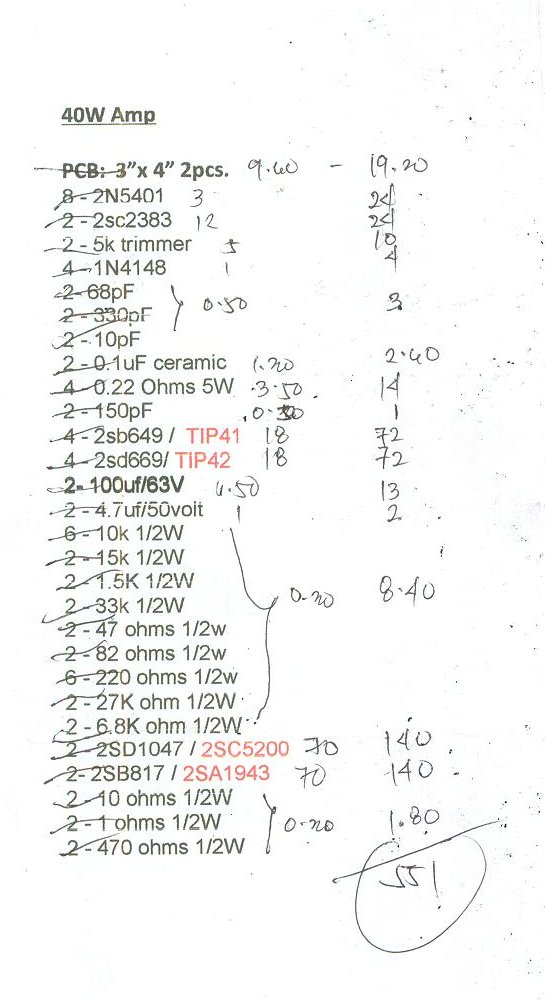 40W Amp
PCB: 3"x 4" 2pcs. 9.60 - 19.20
8 - 2N5401 3 24
2 - 2sc2383 12 24
2 - 5k trimmer 5 10
4 - 1N4148 1 4
2- 68pF
2 - 330pF 0.50 3
2 - 10pF
2 - 0.1uF ceramic 1.20 2.40
4 - 0.22 Ohms 5W 3.50 14
2 - 150pF 1
4 - 2sb649 / TIP41 18 72
4 - 2sd669/ TIP42 18 72
2- 100uf/63V 6.50 13
2 - 4.7uf/50volt 1 2
6 - 10k 1/2W
2 - 15k 1/2W
2 - 1.5K 1/2W
2 - 33k 1/2W 0.20 8.40
2 - 47 ohms 1/2w
2 - 82 ohms 1/2w
6 - 220 ohms 1/2w
2 - 27K ohm 1/2W
2 - 6.8K ohm 1/2W
2 - 2SD1047 / 2SC5200 70 140
2- 2SB817 / 2SA1943 70 140
2 - 10 ohms 1/2W
2 - 1 ohms 1/2W 0.20 1.80
2 - 470 ohms 1/2W
551